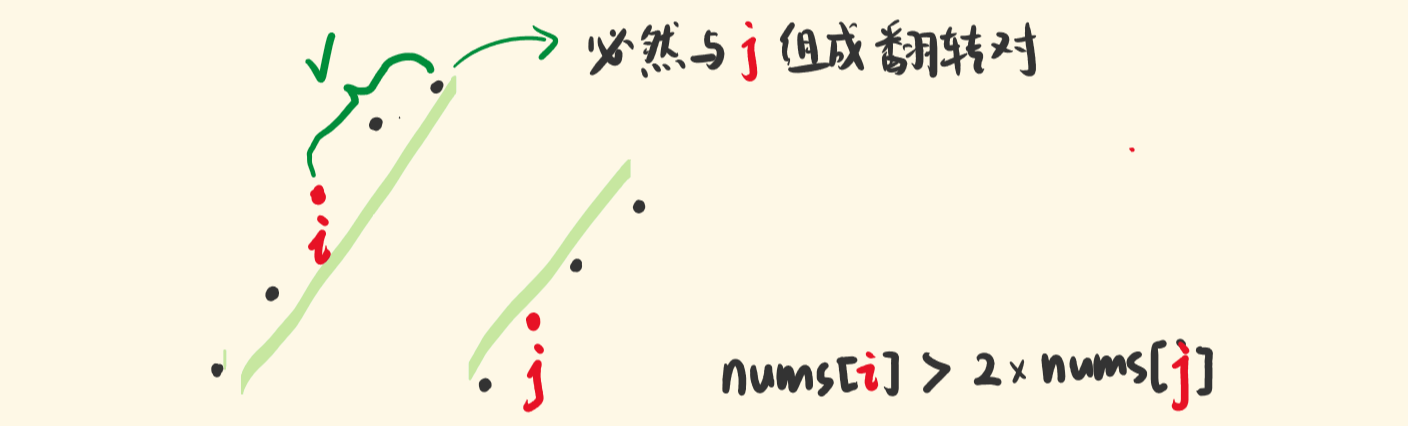 必然与j组成翻转对
i
j
nums[i] > 2 × nums[j]